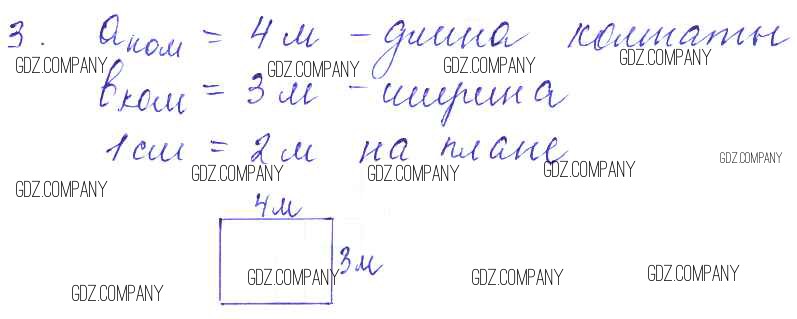 3. aком = 4 м - длина комнаты
GDZ.COMPANY GDZ.COMPANY GDZ.COMPANY GDZ.COMPANY
вком = 3 м - ширина
1 см = 2 м на плане
GDZ.COMPANY
GDZ.COMPANY GDZ.COMPANY GDZ.COMPANY GDZ.COMPANY
4 м
3 м
GDZ.COMPANY GDZ.COMPANY GDZ.COMPANY GDZ.COMPANY